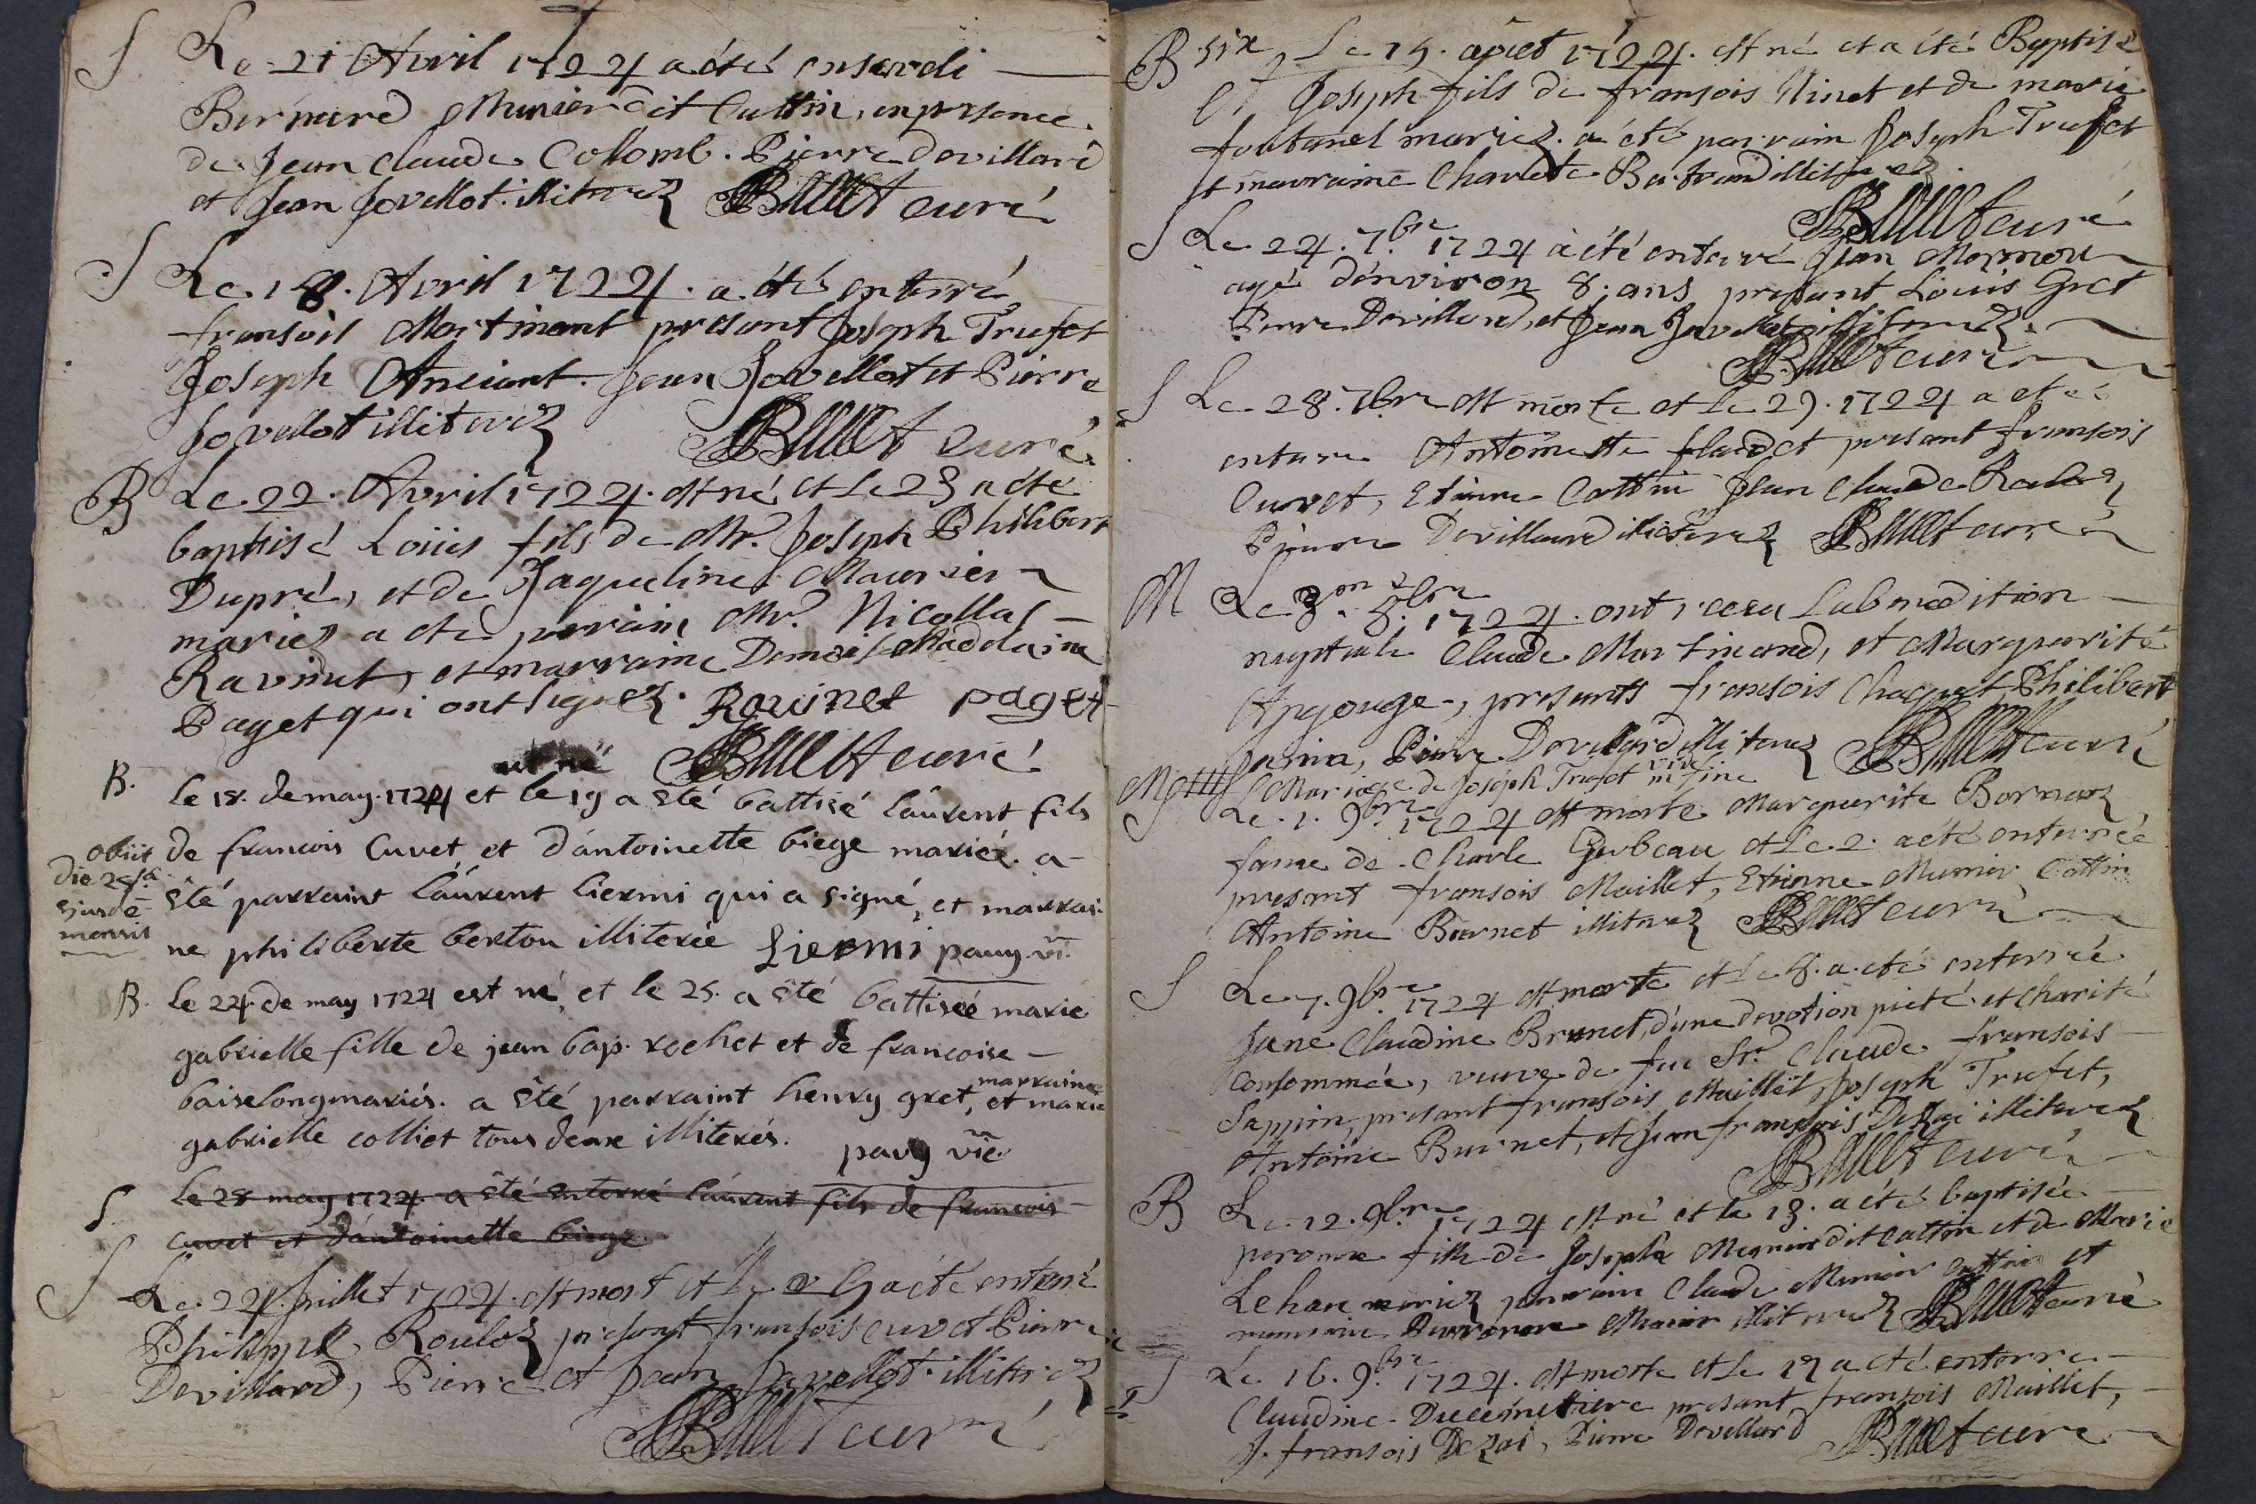 S Le 21 Avril 1724 a été enseveli
Bernard Munier dit Cuttin, en presence
de Jean Claude Colomb. Pierre Devillard
et Jean Jovellot. illiterez Billiet curé
S Le 18. Avril 1724. a été enterré
fransois Martinant presant Joseph Trufet
Joseph Anciant. Jean Jovellot et Pierre
Jovellot illiterez Billiet curé
B Le 22. Avril 1724. est né et Le 23 a été
baptisé Loüis fils de Mr. Joseph Philibert
Dupré, et de Jaqueline Maurier
mariez a été parrain Mr. Nicollas
Ravinet, et marraine Demois. Maddelaine
Paget qui ont signez. Ravinet paget
Billiet curé
est né
B. le 18. de may. 1724 et le 19 a eté battisé laurent fils
de francois Cuvet et d'antoinette biege mariés. a
obiit
die 28a
ejusdē
mensis
eté parraint laurent liermi qui a signé, et marrai-
ne philiberte berton illiterée Liermi pavy. vi.
B. le 24. de may 1724 est né et le 25. a eté battiseé marie
gabrielle fille de jean bap. rochet et de francoise
baiselong mariés. a eté parraint henry gret, et marraine marie
gabrielle colliet tous deux illiterés. pavy vic.
S. le 28 may 1724. a eté enterré laurent fils de francois
cuvet et d'antoinette biege
S Le 24. Juillet 1724. est mort et Le 25 a été enterré
Philippe Roulez presant fransois cuvet Pierre
Devillard, Pierre et Jean Jovellot. illiterez
Billiet curé
B six Le 15. aoüt 1724. est né et a été Baptisé
Joseph fils de fransois Minet et de marie
foutanel mariez. a été parrain Joseph Trufet
et marraine Charlote Bertrand illiterez
Billiet curé
S Le 24. 7bre 1724 à été enterré Jean Mormou
agé d'environ 8. ans presant Louis Gret
Pierre Devillard, et Jean Jovellot illiterez.
Billiet curé
S Le 28. 7bre est morte et le 29. 1724 a été
enterré Antoinette flandet presant fransois
Cuvet, Etienne Cottin Jean Claude Roulez
Pierre Devillard illiterez Billiet curé
M Le 3on 8bre 1724. ont receu La benedition
nuptiale Claude Martinand, et Marguerite
Apgouge, presants fransois Chaquet, Philibert
, Pierre Devillard illiterez Billiet curé
Mariage de Joseph Trufet vide in fine
Le. 1. 9bre 1724 est morte Marguerite Bornaz
fame de Charle Gubeau et Le 2. a été enterrée
presant fransois Maillet, Etienne Munier Cottin
Antoine Burnet illiterez Billiet curé
S Le 7. 9bre 1724 est morte et Le 8. a été enterrée
Jane Claudine Brunet, d'une devotion pieté et charité
consommée, veuve de feu Sr. Claude fransois
Sappin, presant fransois Maillet, Joseph Trufet,
Antoine Burnet, et Jean fransois Dezai illiterez
Billiet curé
B Le. 12. 9bre 1724 est né et le 13. a été baptisée
peronne fille de Joseph Meunier dit Cattin et de Marie
Lehare mariez parrain Claude Munier Cottin et
marraine Munier illiterez Billiet curé
S Le 16. 9bre 1724. est morte et Le 17 a été enterré
Claudine Ducemetiere presant fransois Maillet,
J. fransois Dezai, Pierre Devillard Billiet curé